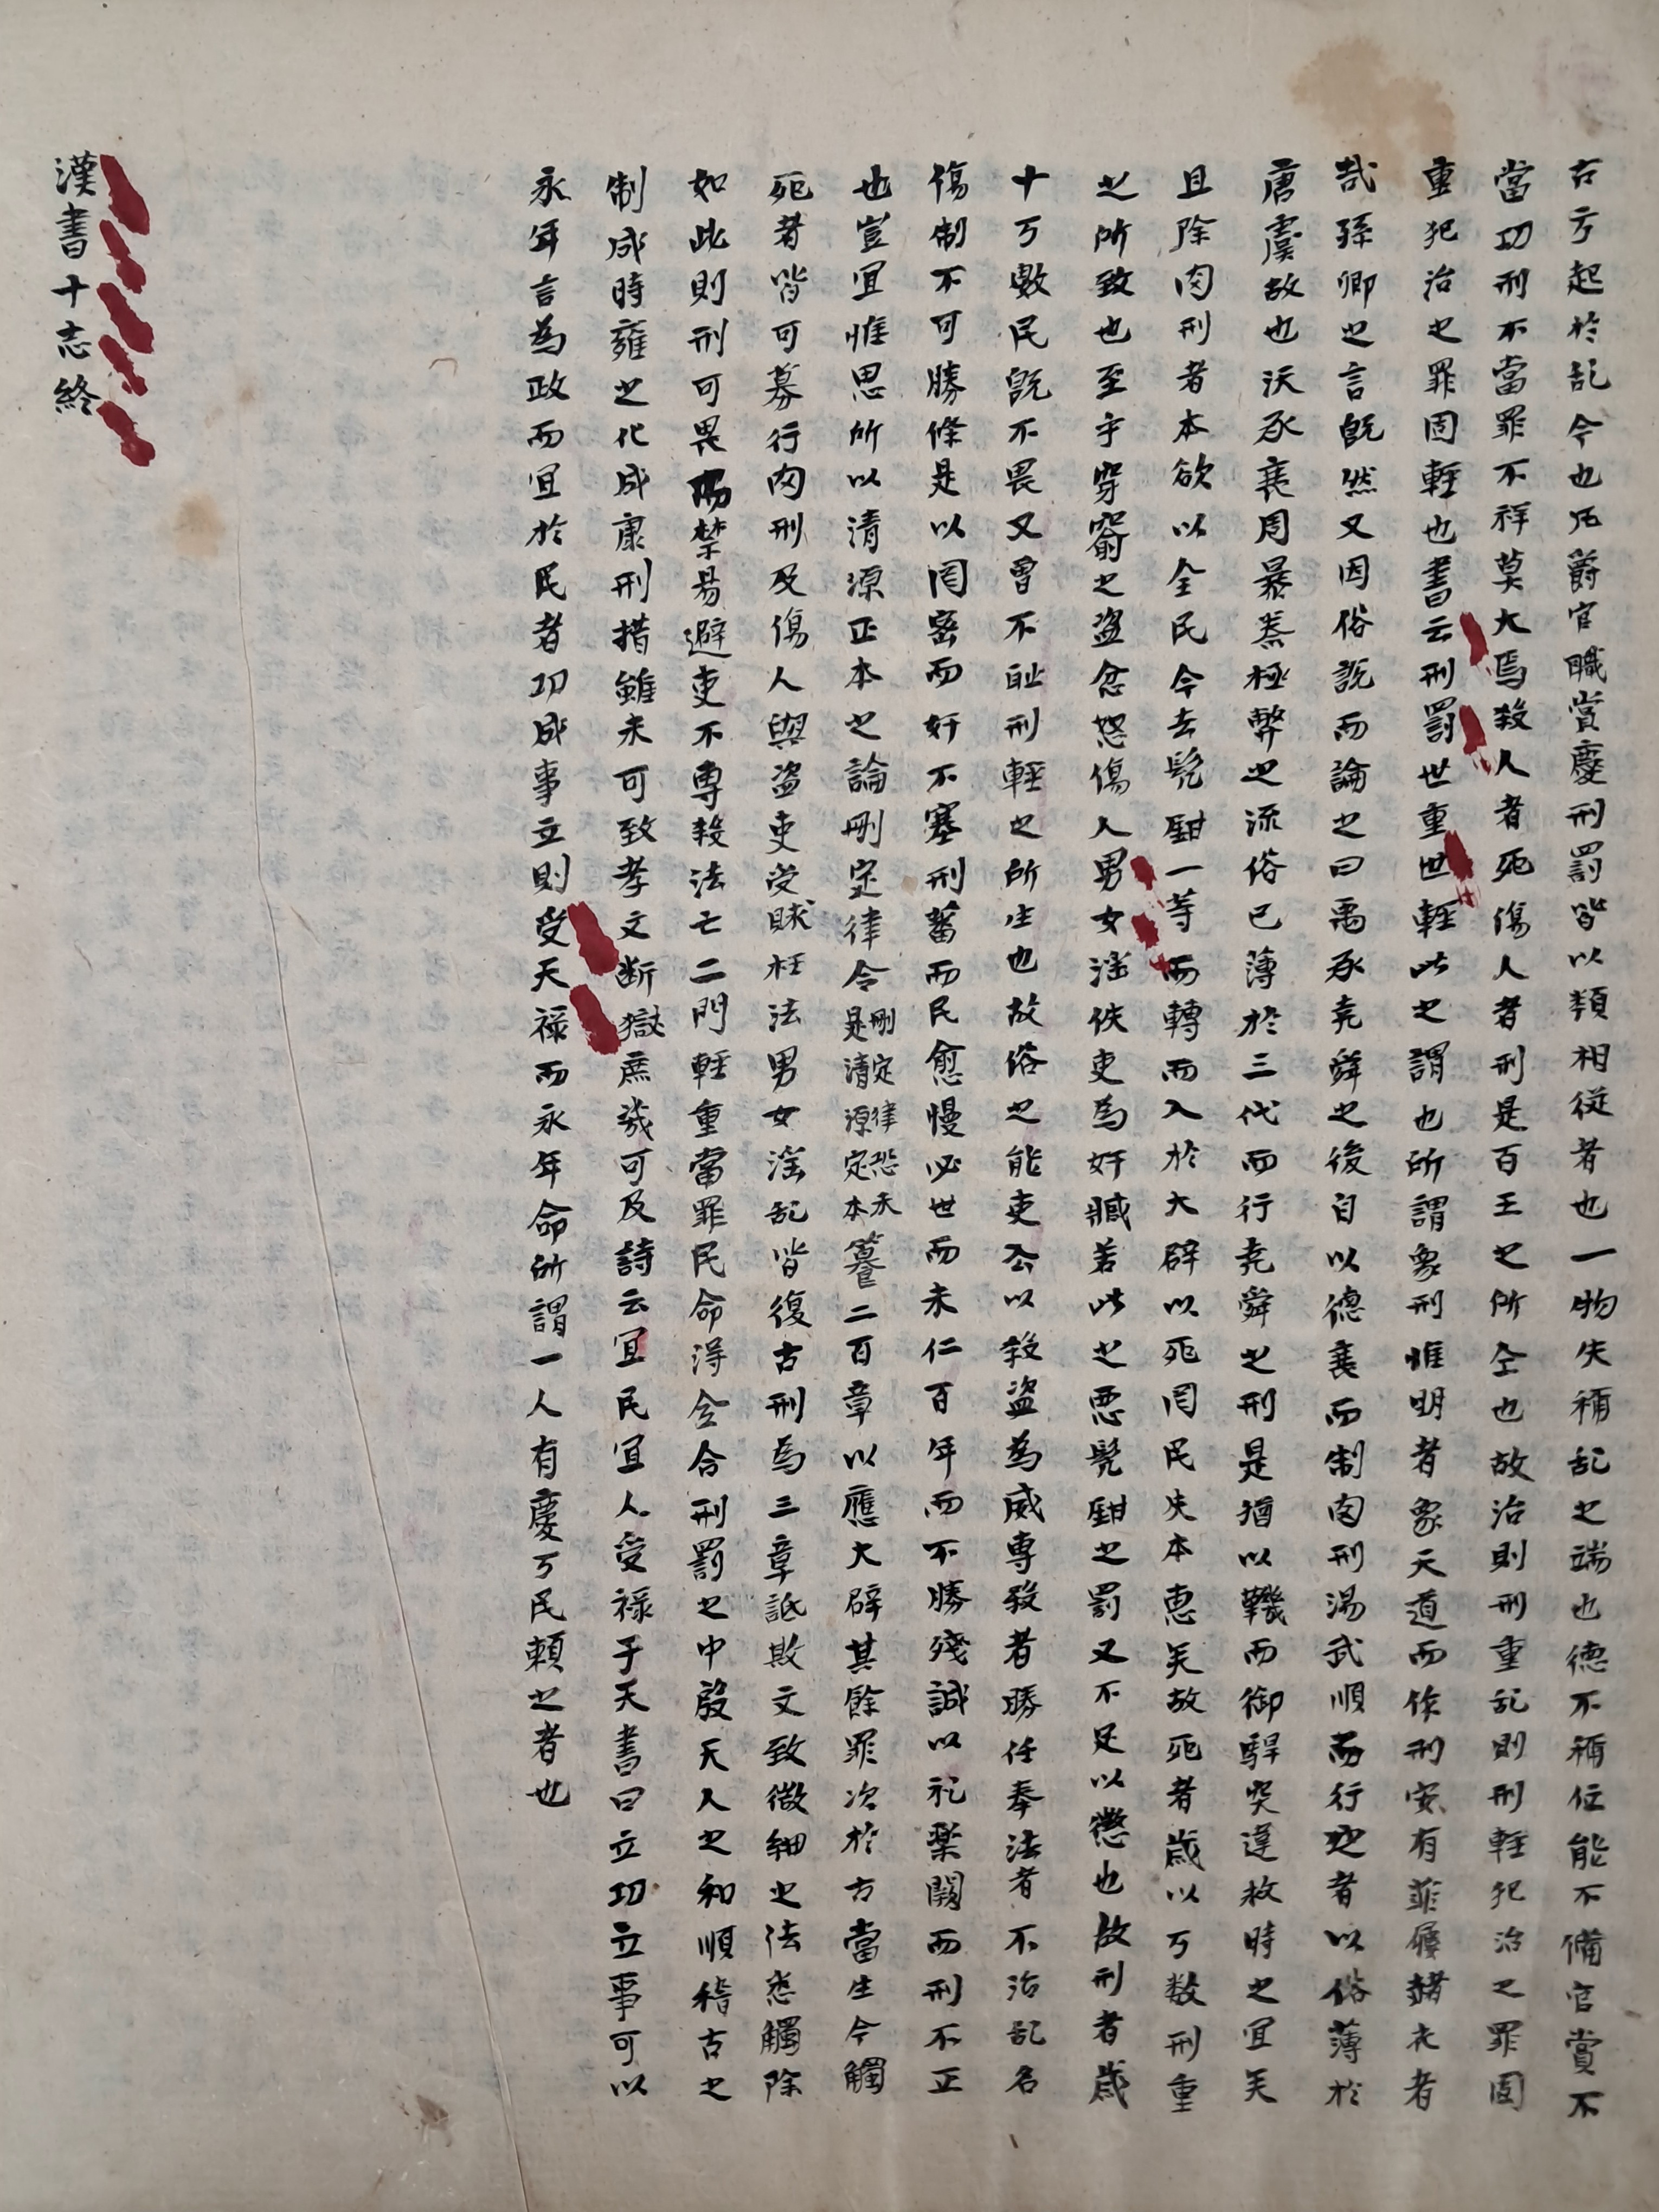 古方起於乱今也凡爵官職賞慶刑罰皆以類相従者也一物失称乱之端也德不称位能不備官賞不
當功刑不當罪不祥莫大焉殺人者死傷人者刑是百王之所仝也故治則刑重乱則刑軽犯治之罪固
重犯治之罪固軽也書云刑罰世重世軽此之謂也所謂象刑惟明者象天道而作刑安有菲屦赭衣者
哉孫卿之言既然又因俗說而論之曰禹承堯舜之後自以德衰而制肉刑湯武順而行之者以俗薄於
唐虞故也沃承衰周暴秦極弊之流俗已薄於三代而行堯舜之刑是猶以鞿而御駻突違救時之宜矣
且除肉刑者本欲以全民今去髡鉗一等而轉而入於大辟以死罔民失本恵矣故死者歲以万数刑重
之所致也至乎穿窬之盗忿怒傷人男女淫佚吏為奸臧若此之悪髡鉗之罰又不足以懲也故刑者歲
十万數民既不畏又曾不耻刑軽之所生也故俗之能吏公以殺盗為威專殺者勝任奉法者不治乱名
傷制不可勝條是以罔宻而奸不塞刑蕃而民愈慢必世而未仁百年而不勝殘誠以礼楽闕而刑不正
也豈宜惟思所以清源正本之論刪定律令刪定律恐未是清源定本籑二百章以應大辟其餘罪次於方當生今觸
死者皆可募行肉刑及傷人與盗吏受賕枉法男女淫乱皆復古刑為三章詆欺文致微細之法悉觸除
如此則刑可畏而禁易避吏不專殺法亡二門軽重當罪民命得仝合刑罰之中殷天人之和順稽古之
制成時雍之化成康刑措雖未可致孝文断獄庶幾可及詩云宜民宜人受禄于天書曰立功立事可以
永年言為政而宜於民者功成事立則受天禄而永年命所謂一人有慶万民頼之者也
漢書十志終